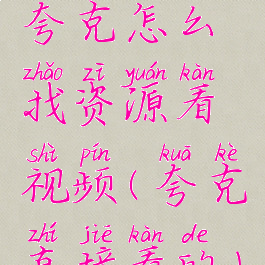 夸克怎么
zhǎo zī yuán kàn
找资源看
shì pín kuā kè
视频(夸克
zhí jiē kàn de
直接看的)